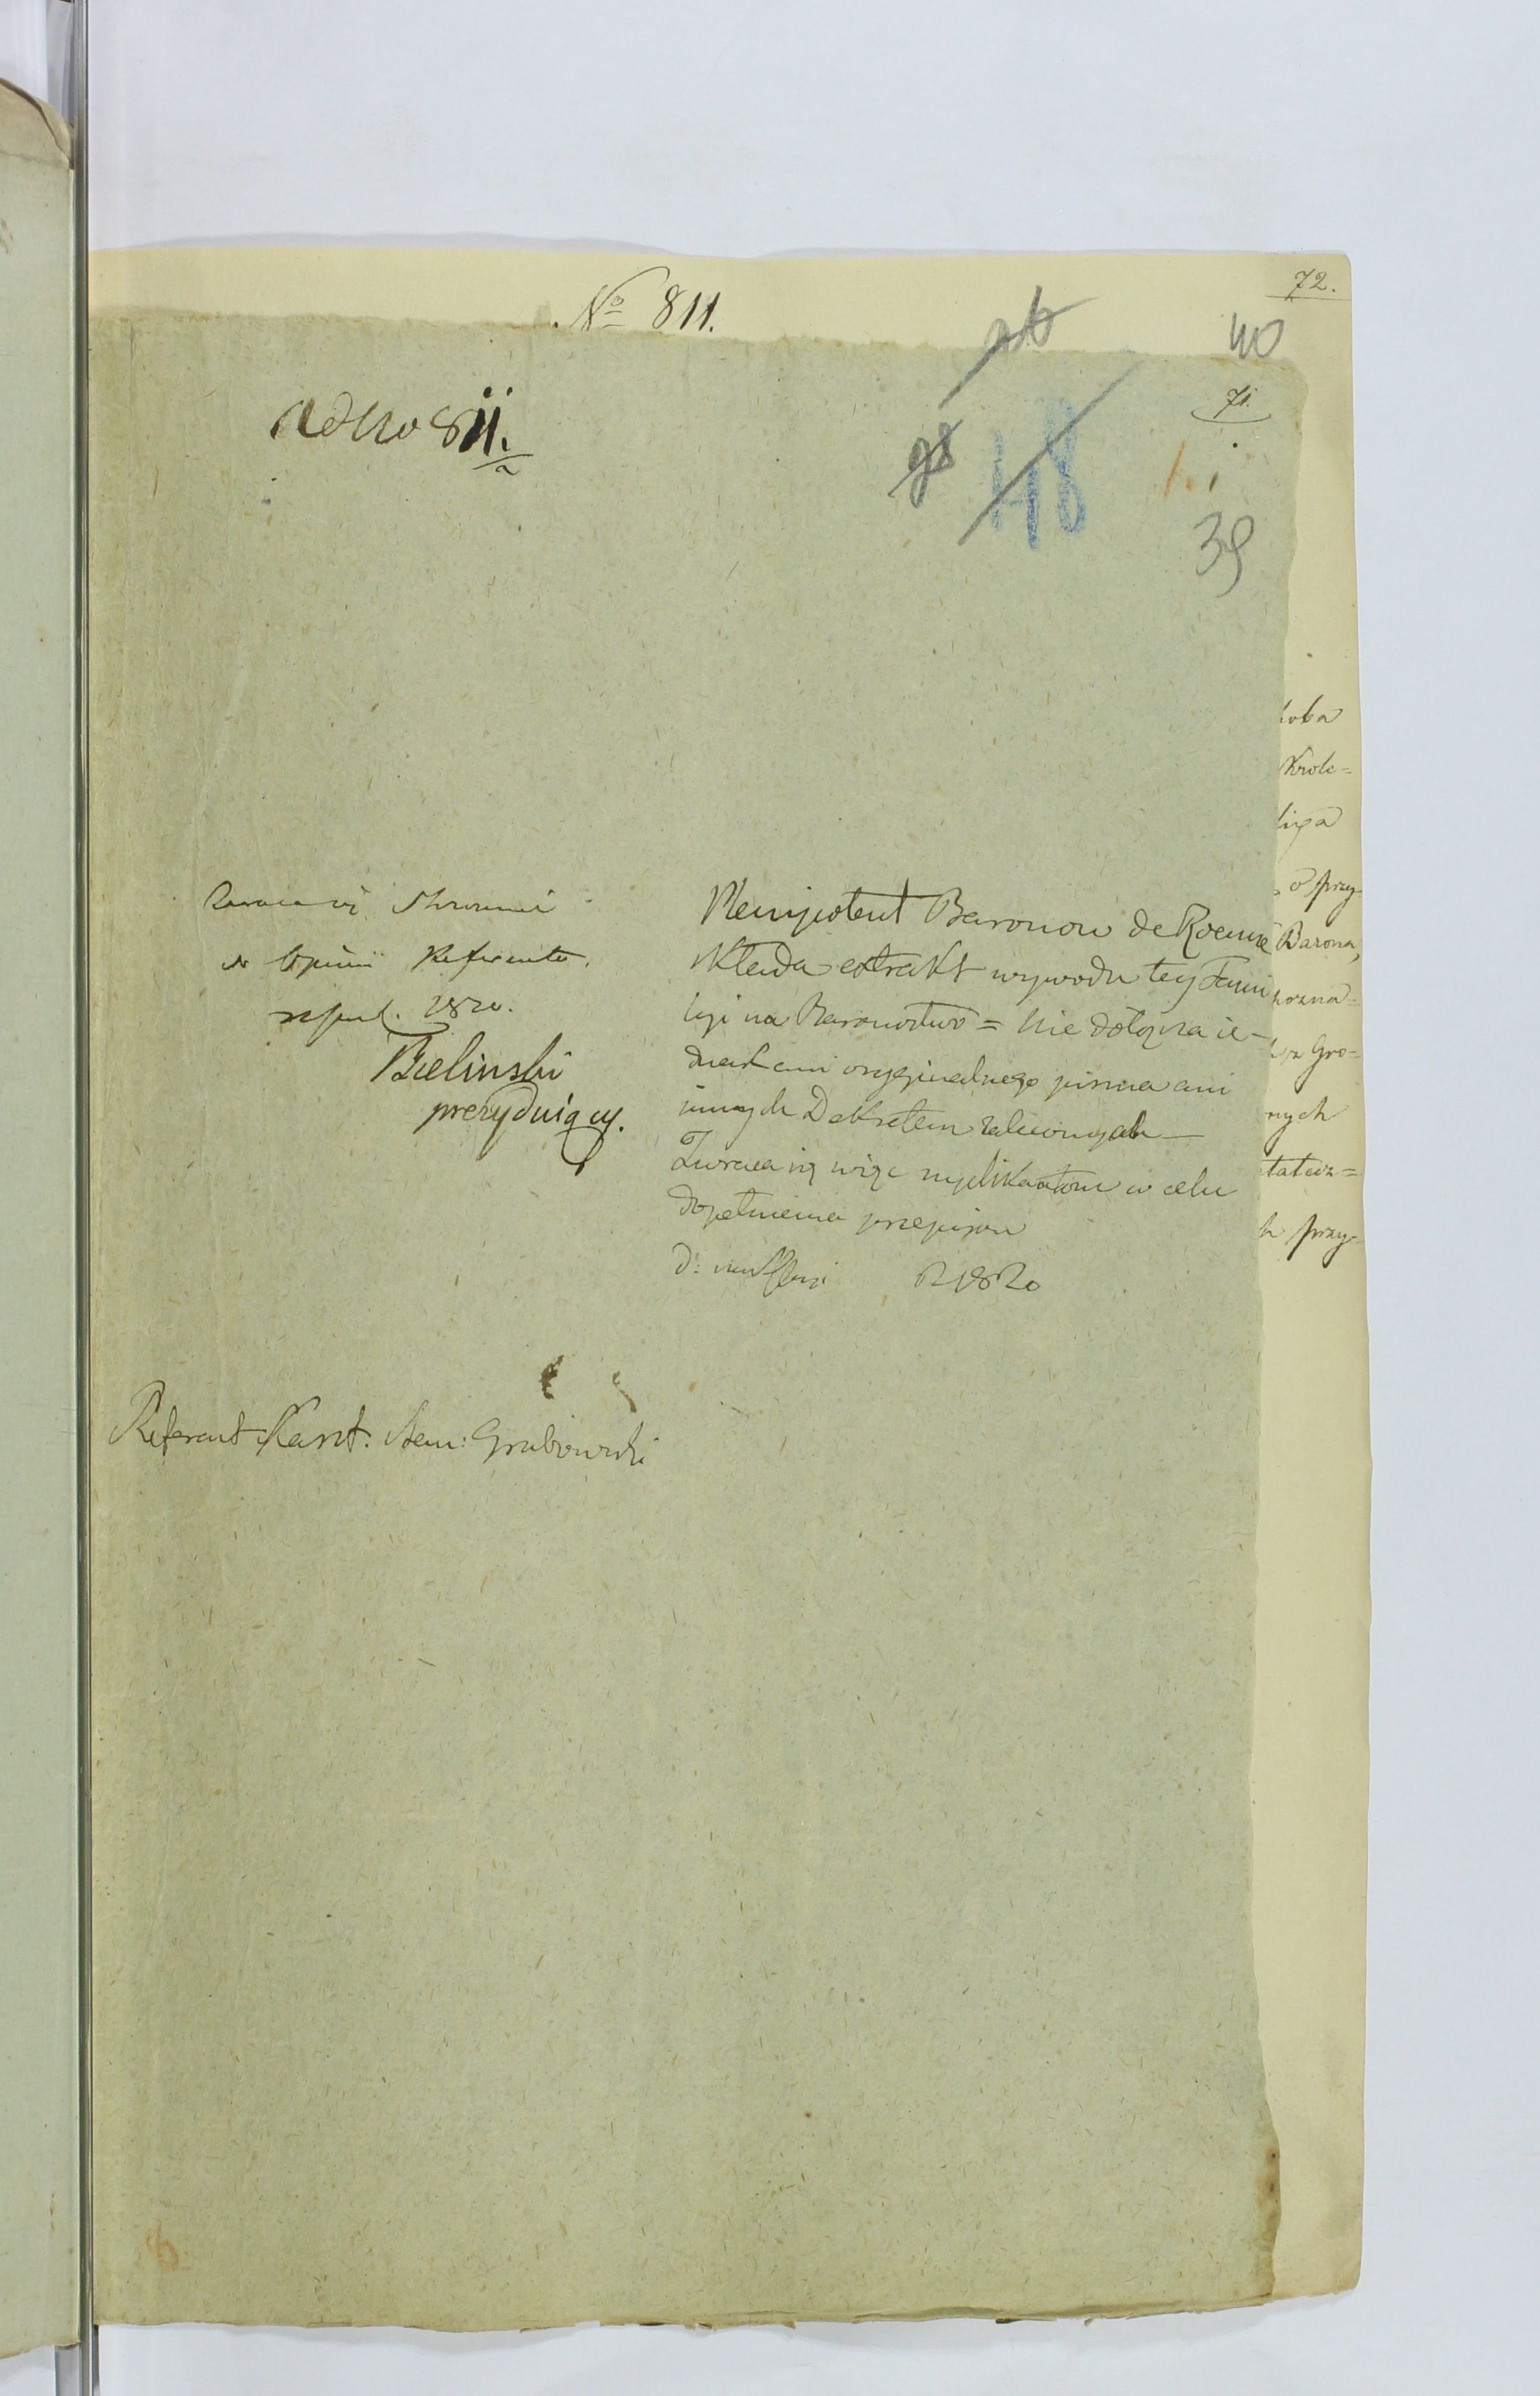 72.
No 811.
40
71.
ad No 811.
a
98
48
39
Zwraca się stosownie
do Opinii Referenta.
1820.
Bielinski
prezyduiący.
Plenipotent Baronow de Roenne
składa extrakt wywodu tey Fami
lyi na Baronostwo = Nie dołącza ie-
dnak ani oryginalnego pisma ani
innych Dekretem
Zwraca się więc suplikantom w celu
dopełnienia przepisow
d: 1820
Referent Kaszt. Sen: Grabowski
Krole=
o przy-
Barona,
Gro=
nych
przy=